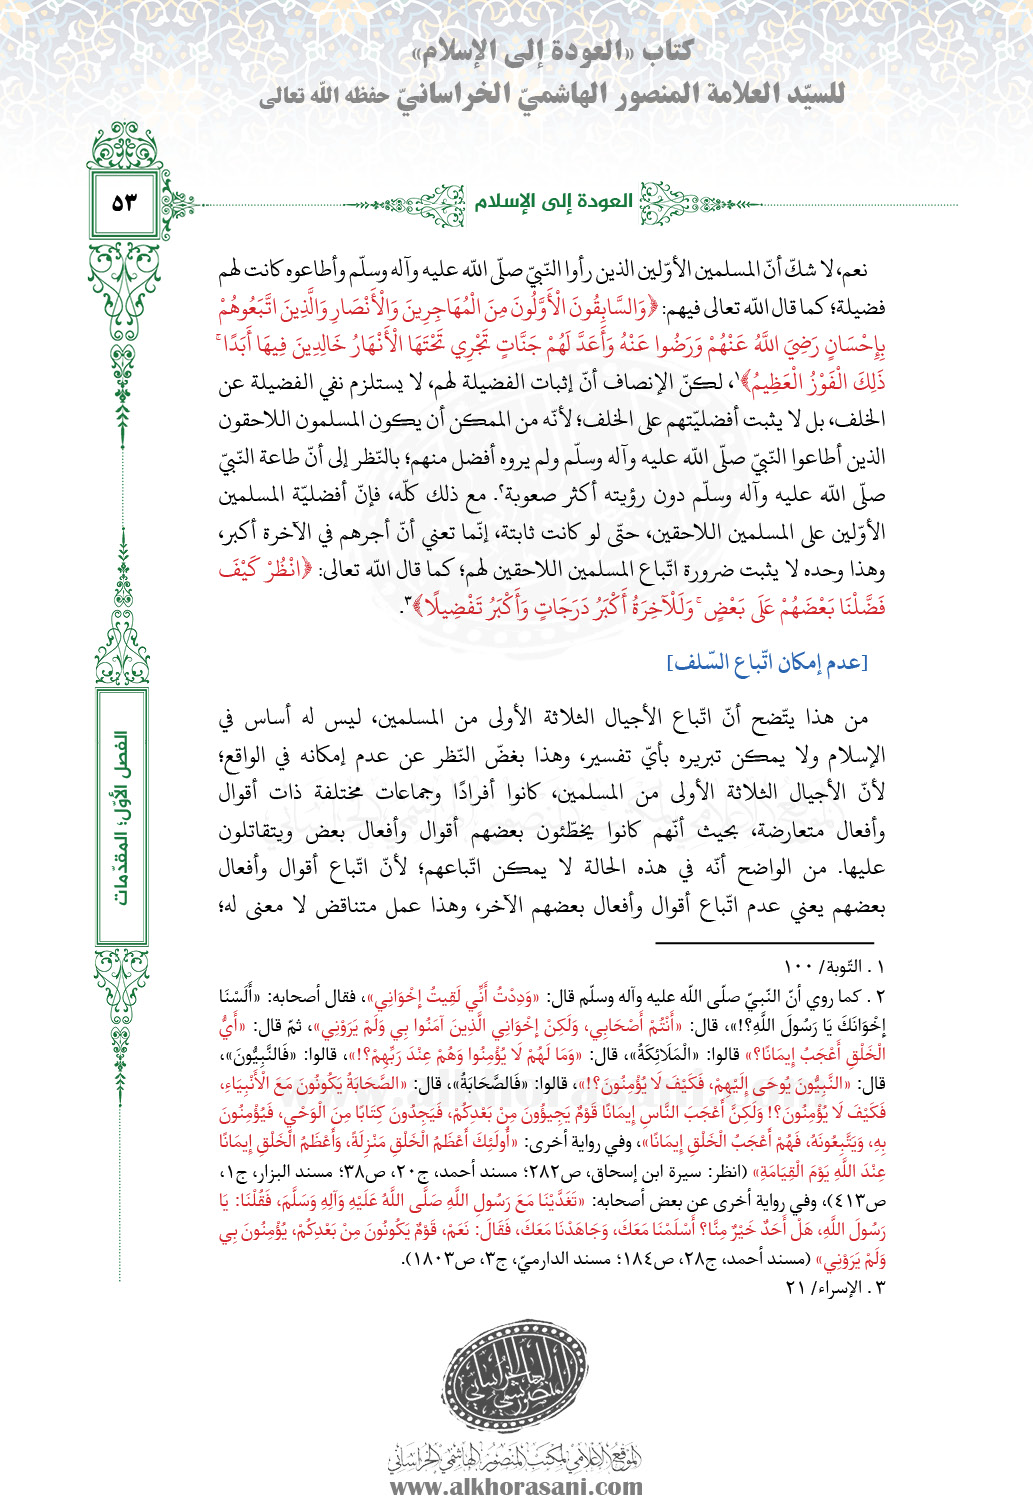 كتاب «العودة إلى الإسلام»
للسيّد العلامة المنصور الهاشميّ الخراسانيّ حفظه اللّه تعالى
٥٣
العودة إلى الإسلام
نعم، لا شكّ أنّ المسلمين الأوّلين الذين رأوا النّبيّ صلّى اللّه عليه وآله وسلّم وأطاعوه كانت لهم
فضيلة؛ كما قال اللّه تعالى فيهم: ﴿وَالسَّابِقُونَ الْأَوَّلُونَ مِنَ الْمُهَاجِرِينَ وَالْأَنْصَارِ وَالَّذِينَ اتَّبَعُوهُمْ
بِإِحْسَانٍ رَضِيَ اللَّهُ عَنْهُمْ وَرَضُوا عَنْهُ وَأَعَدَّ لَهُمْ جَنَّاتٍ تَجْرِي تَحْتَهَا الْأَنْهَارُ خَالِدِينَ فِيهَا أَبَدًا ۚ
ذَلِكَ الْفَوْزُ الْعَظِيمُ﴾١، لكنّ الإنصاف أنّ إثبات الفضيلة لهم، لا يستلزم نفي الفضيلة عن
الخلف، بل لا يثبت أفضليّتهم على الخلف؛ لأنّه من الممكن أن يكون المسلمون اللاحقون
الذين أطاعوا النّبيّ صلّى اللّه عليه وآله وسلّم ولم يروه أفضل منهم؛ بالنّظر إلى أنّ طاعة النّبيّ
صلّى اللّه عليه وآله وسلّم دون رؤيته أكثر صعوبة٢. مع ذلك كلّه، فإنّ أفضليّة المسلمين
الأوّلين على المسلمين اللاحقين، حتّى لو كانت ثابتة، إنّما تعني أنّ أجرهم في الآخرة أكبر،
وهذا وحده لا يثبت ضرورة اتّباع المسلمين اللاحقين لهم؛ كما قال اللّه تعالى: ﴿انْظُرْ كَيْفَ
فَضَّلْنَا بَعْضَهُمْ عَلَى بَعْضٍ ۚ وَلَلْآخِرَةُ أَكْبَرُ دَرَجَاتٍ وَأَكْبَرُ تَفْضِيلًا﴾٣.
[عدم إمكان اتّباع السّلف]
من هذا يتّضح أنّ اتّباع الأجيال الثلاثة الأولى من المسلمين، ليس له أساس في
الإسلام ولا يمكن تبريره بأيّ تفسير، وهذا بغضّ النّظر عن عدم إمكانه في الواقع؛
لأنّ الأجيال الثلاثة الأولى من المسلمين، كانوا أفرادًا وجماعات مختلفة ذات أقوال
وأفعال متعارضة، بحيث أنّهم كانوا يخطّئون بعضهم أقوال وأفعال بعض ويتقاتلون
عليها. من الواضح أنّه في هذه الحالة لا يمكن اتباعهم؛ لأنّ اتباع أقوال وأفعال
بعضهم يعني عدم اتّباع أقوال وأفعال بعضهم الآخر، وهذا عمل متناقض لا معنى له؛
الفصل الأوّل؛ المقدّمات
١ . التّوبة/ ١٠٠
٢ . كما روي أنّ النّبيّ صلّى اللّه عليه وآله وسلّم قال: «وَدِدْتُ أَنِّي لَقِيتُ إِخْوَانِي»، فقال أصحابه: «أَلَسْنَا
إِخْوَانَكَ يَا رَسُولَ اللَّهِ؟!»، قال: «أَنْتُمْ أَصْحَابِي، وَلَكِنْ إِخْوَانِي الَّذِينَ آمَنُوا بِي وَلَمْ يَرَوْنِي»، ثمّ قال: «أَيُّ
الْخَلْقِ أَعْجَبُ إِيمَانًا؟» قالوا: «الْمَلَائِكَةُ»، قال: «وَمَا لَهُمْ لَا يُؤْمِنُوا وَهُمْ عِنْدَ رَبِّهِمْ؟!»، قالوا: «فَالنَّبِيُّونَ»،
قال: «النَّبِيُّونَ يُوحَى إِلَيْهِمْ، فَكَيْفَ لَا يُؤْمِنُونَ؟!»، قالوا: «فَالصَّحَابَةُ»، قال: «الصَّحَابَةُ يَكُونُونَ مَعَ الْأَنْبِيَاءِ،
فَكَيْفَ لَا يُؤْمِنُونَ؟! وَلَكِنَّ أَعْجَبَ النَّاسِ إِيمَانًا قَوْمٌ يَجِيؤُونَ مِنْ بَعْدِكُمْ، فَيَجِدُونَ كِتَابًا مِنَ الْوَحْيِ، فَيُؤْمِنُونَ
بِهِ، وَيَتَّبِعُونَهُ، فَهُمْ أَعْجَبُ الْخَلْقِ إِيمَانًا»، وفي رواية أخرى: «أُولَئِكَ أَعْظَمُ الْخَلْقِ مَنْزِلَةً، وَأَعْظَمُ الْخَلْقِ إِيمَانًا
عِنْدَ اللَّهِ يَوْمَ الْقِيَامَةِ» (انظر: سيرة ابن إسحاق، ص٢٨٢؛ مسند أحمد، ج٢٠، ص٣٨؛ مسند البزار، ج١،
ص٤١٣)، وفي رواية أخرى عن بعض أصحابه: «تَغَدَّيْنَا مَعَ رَسُولِ اللَّهِ صَلَّى اللَّهُ عَلَيْهِ وَآلِهِ وَسَلَّمَ، فَقُلْنَا: يَا
رَسُولَ اللَّهِ، هَلْ أَحَدٌ خَيْرٌ مِنَّا؟ أَسْلَمْنَا مَعَكَ، وَجَاهَدْنَا مَعَكَ، فَقَالَ: نَعَمْ، قَوْمٌ يَكُونُونَ مِنْ بَعْدِكُمْ، يُؤْمِنُونَ بِي
وَلَمْ يَرَوْنِي» (مسند أحمد، ج٢٨، ص١٨٤؛ مسند الدارميّ، ج٣، ص١٨٠٣).
٣ . الإسراء/ ٢١
الموقع الإعلامي لمكتب المنصور الهاشمي الخراساني
www.alkhorasani.com